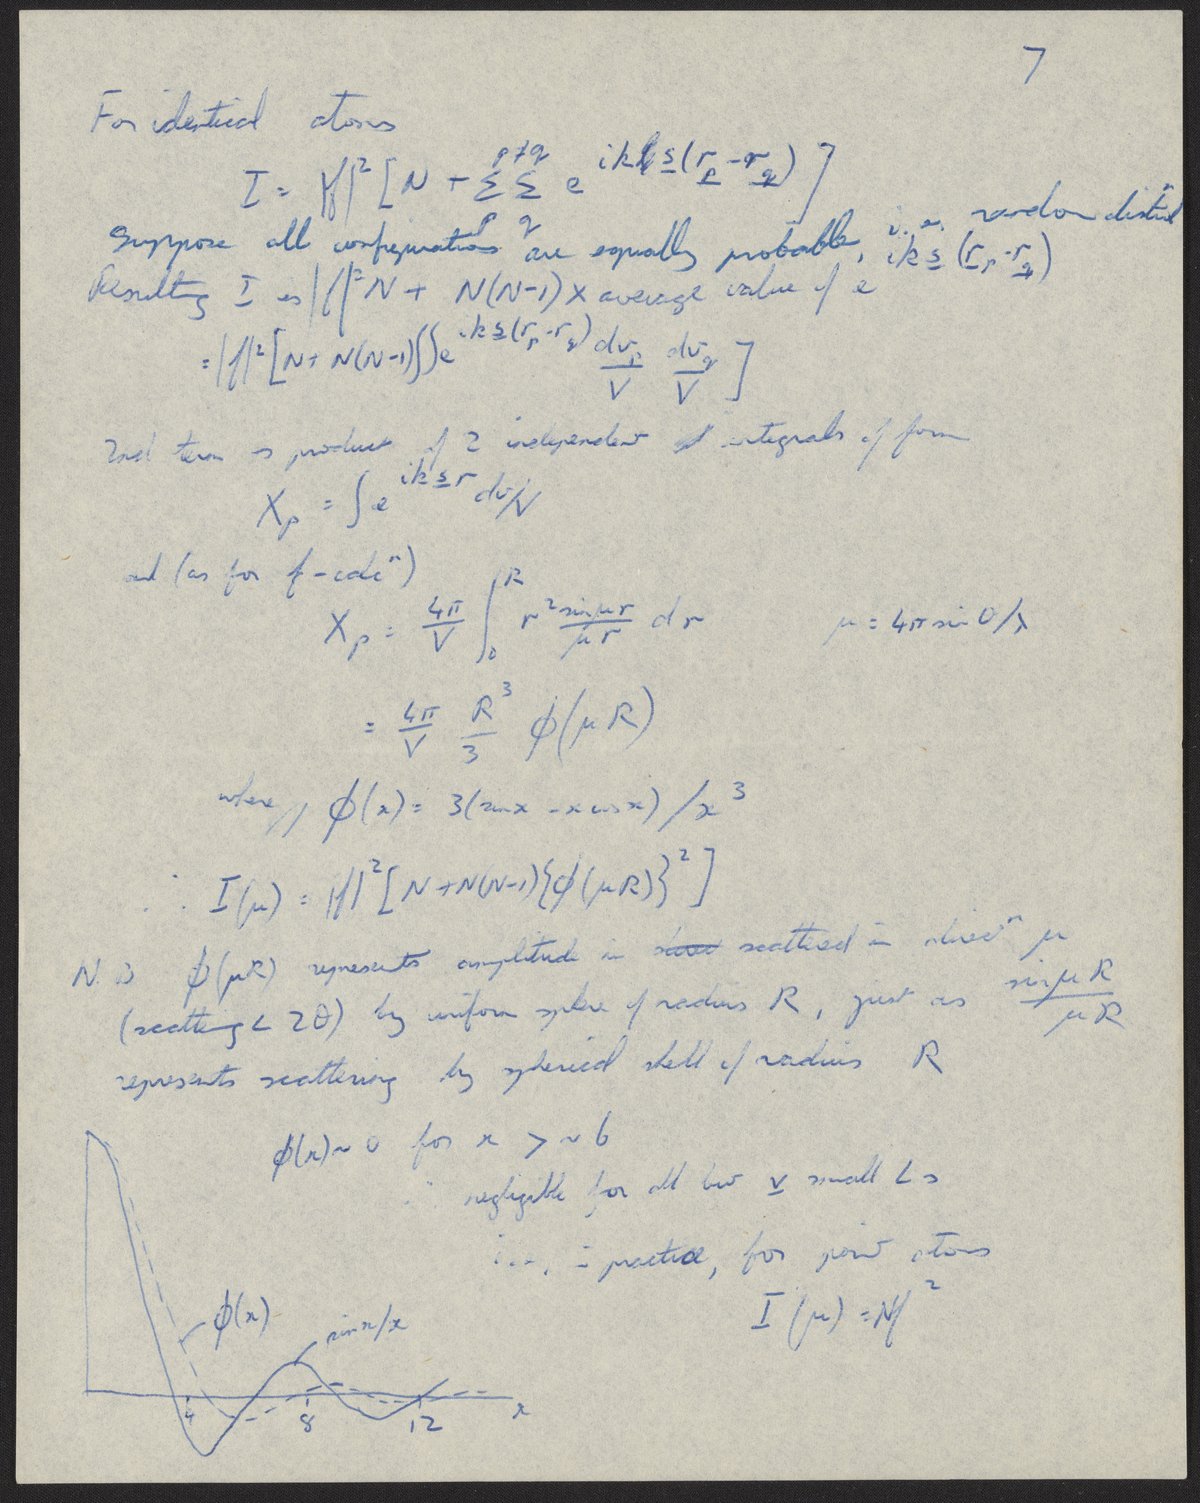 7
For identical atoms
I = |f|² [N + Σ_p Σ_q^{p≠q} e^{ik s̲·(r̲_p - r̲_q)}]
Suppose all configurations are equally probable, i.e. random distribⁿ
Resulting I is |f|²N + N(N-1) × average value of e^{ik s̲(r̲_p - r̲_q)}
= |f|² [N + N(N-1) ∫∫ e^{ik s̲(r_p - r_q)} dv_p/V dv_q/V]
2nd term is product of 2 independent integrals of form
X_p = ∫ e^{ik s̲ r} dv/V
and (as for f-calcⁿ)
X_p = 4π/V ∫₀^R r² sin μr/μr dr μ = 4π sin θ/λ
= 4π/V R³/3 φ(μR)
where φ(x) = 3(sin x - x cos x)/x³
∴ I(μ) = |f|² [N + N(N-1){φ(μR)}²]
N.B φ(μR) represents amplitude in scattered in direcⁿ μ
(scattering < 2θ) by uniform sphere of radius R, just as sin μR/μR
represents scattering by spherical shell of radius R
φ(x) ~ 0 for x > ~ 6
∴ negligible for all but v̲ small < s
i.e., in practice, for point atoms
I(μ) = Nf²
φ(x)
sin x/x
4 8 12 x